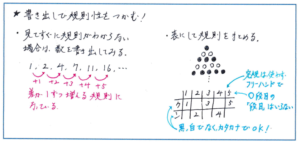 ★ 書き出して規則性をつかむ！
・見てすぐに規則がわからない
場合は、数を書き出してみる。
1, 2, 4, 7, 11, 16, …
+1 +2 +3 +4 +5
差が1ずつ増える規則に
なっている。
・表にして規則をまとめる。
1 2 3 4 5
ク 1 3 5
シ 2 4
定規は使わず
フリーハンドで
○段目の
「段目」はいらない
黒、白でなく、カタカナでOK！